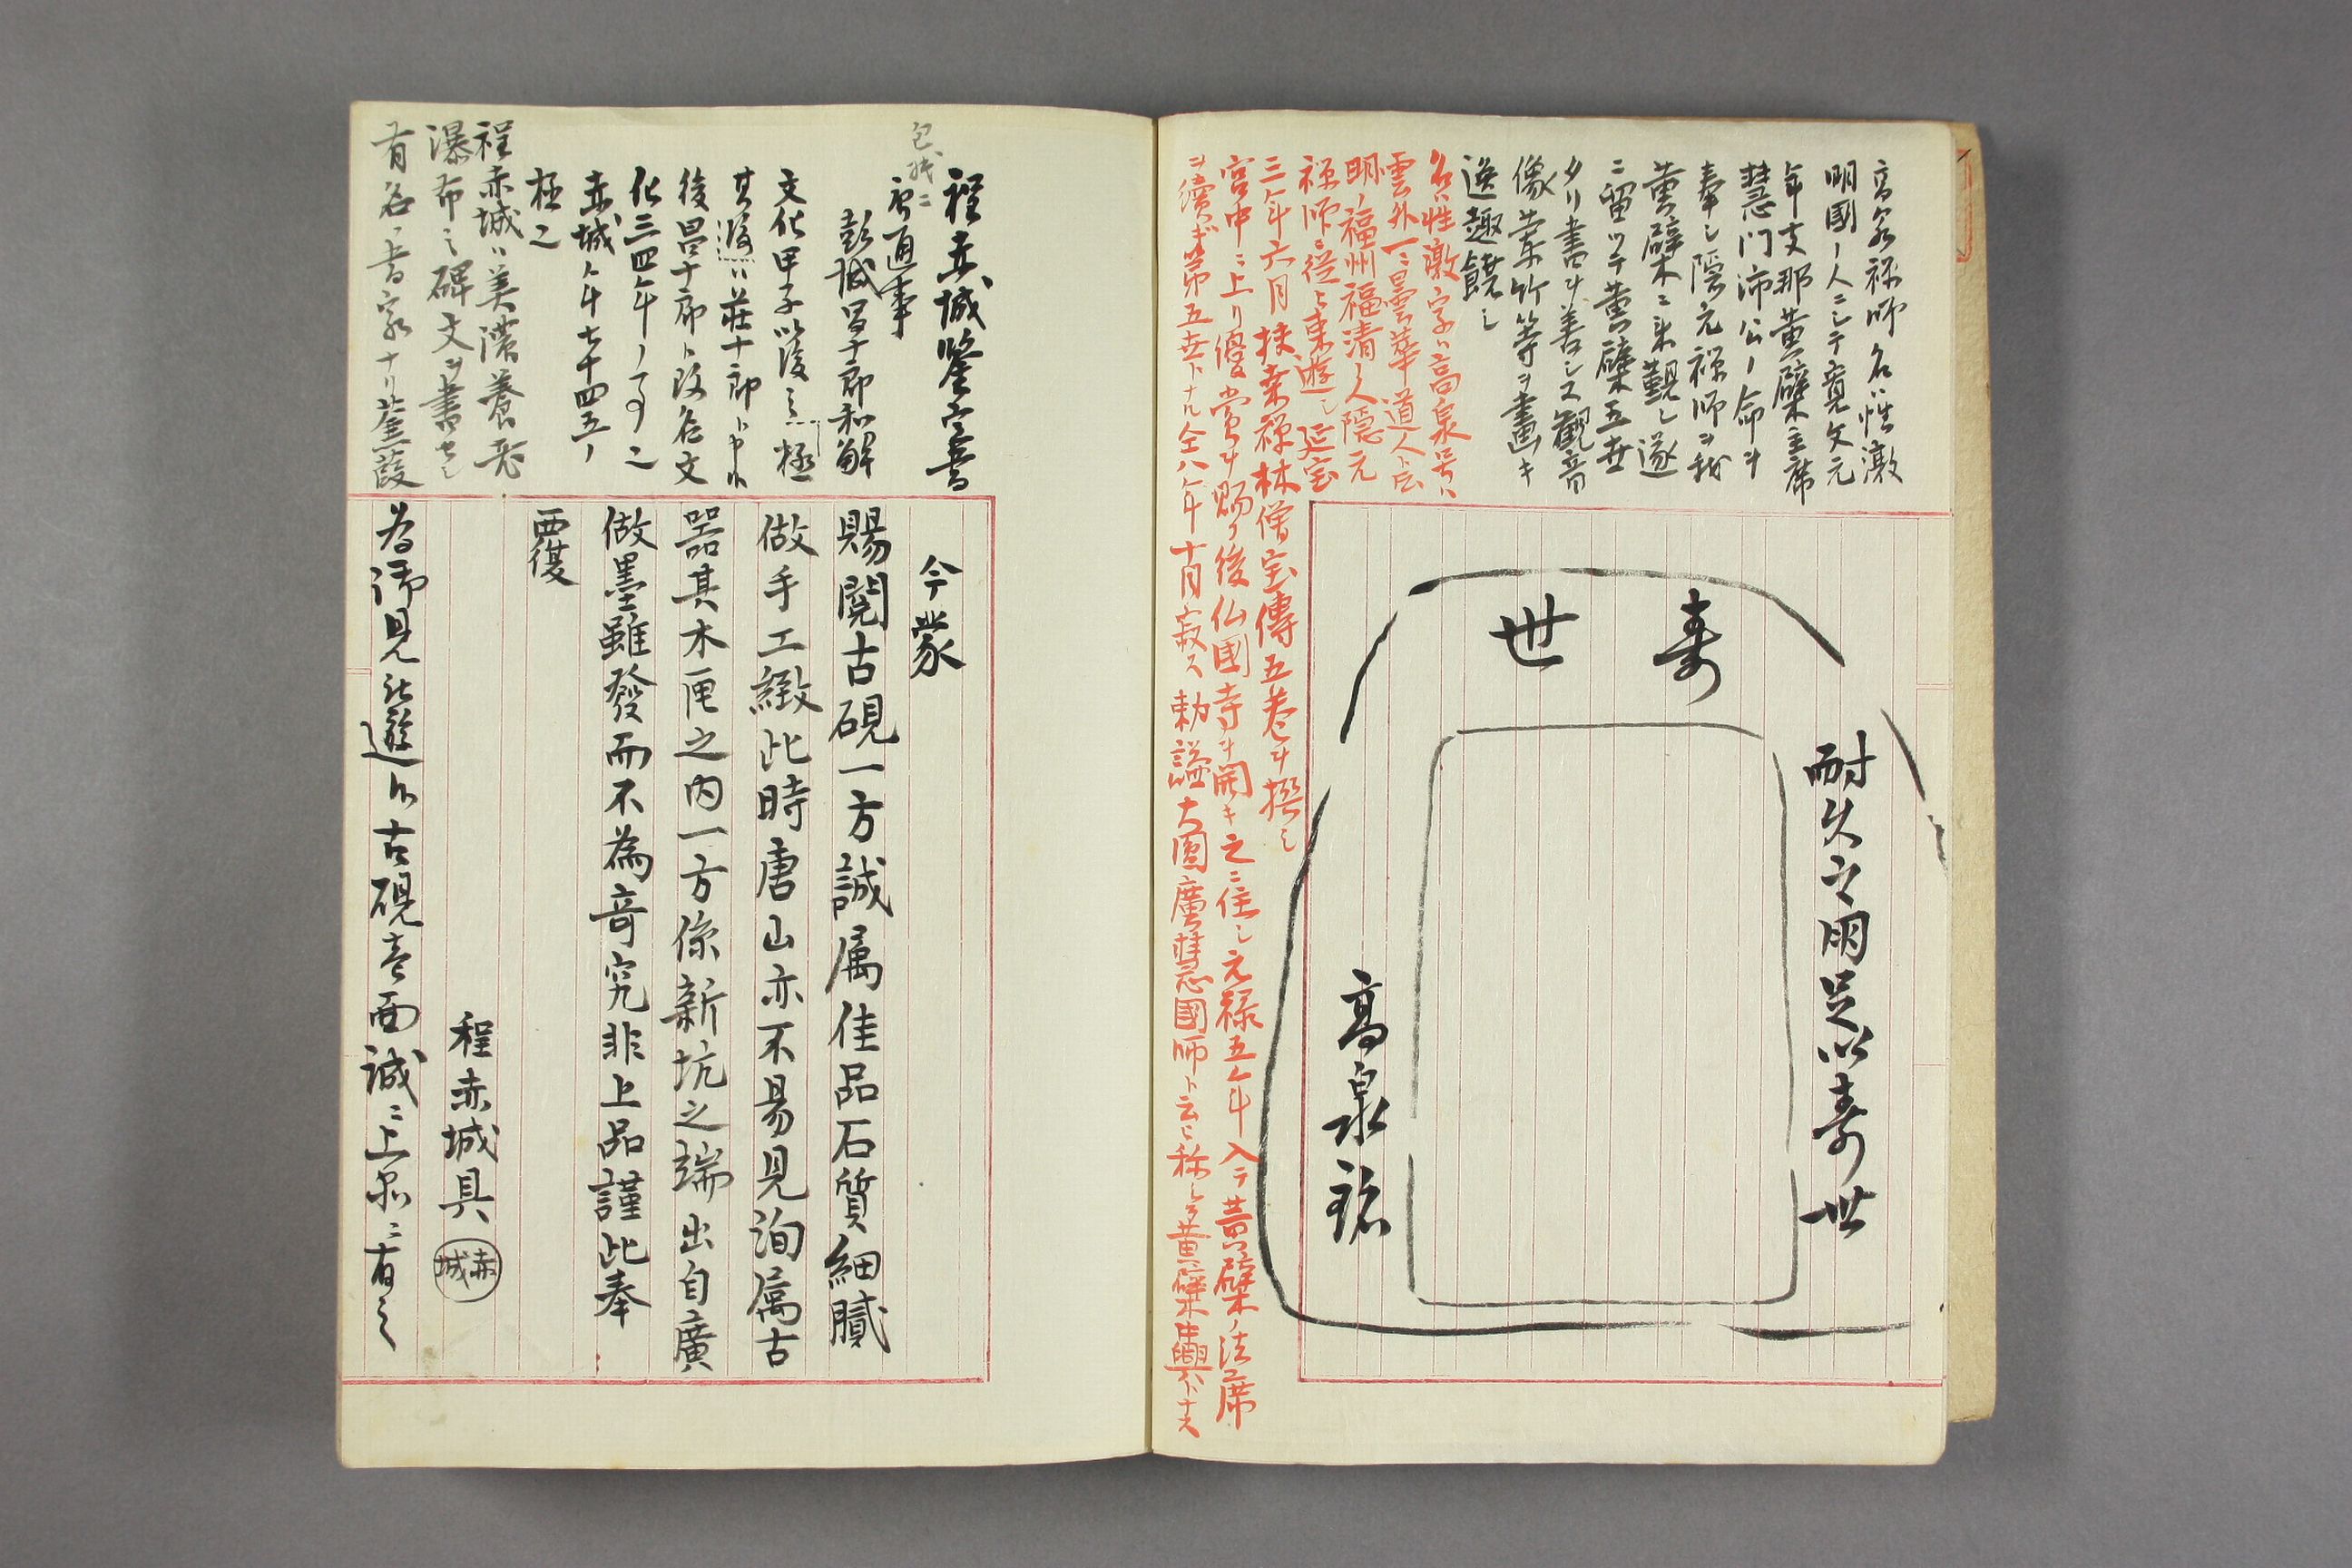 高泉禅師名ハ性潡
明國ノ人ニシテ寛文元
年支那黄檗主席
慧门沛公ノ命ヲ
奉シ隠元禅師ヲ我
黄檗ニ来覲シ遂
ニ留ツテ黄檗五世
タリ書ヲ善シ又観音
像蘭竹等ヲ画キ
逸趣饒シ
名ハ性潡字ハ高泉号ハ
雲外一ニ曇華道人ト云
明ノ福州福清ノ人隠元
禅師ニ従ヒ東遊シ延宝
三年六月扶桑禅林僧宝傳五巻ヲ撰シ
宮中ニ上リ優賞ヲ賜フ後仏國寺ヲ開キ之ニ住シ元禄五年入テ黄檗ノ法席
ヲ續ギ第五世トナル仝八年十月寂ス勅諡大圓廣慧國師ト云ヒ称シテ黄檗中興トナス
壽世
耐久之用足以壽世
高泉銘
程赤城鑒定書
包紙ニ
唐通事
彭城昌十郎和解
文化甲子以後之極
其後ハ莊十郎ト申ルヽ
後昌十郎ト改名文
化三四年ノ了之
赤城年七十四五ノ
極之
程赤城ハ美濃養老
瀑布之碑文ヲ書セシ
有名ノ書家ナリ蒹葭
今蒙
賜閲古硯一方誠属佳品石質細膩
做手工緻此時唐山亦不易見洵属古
器其木匣之内一方係新坑之端出自廣
做墨雖發而不為竒究非上品謹此奉
覆
程赤城具
赤城
為御見被遊候古硯壱面誠ニ上品ニ有之